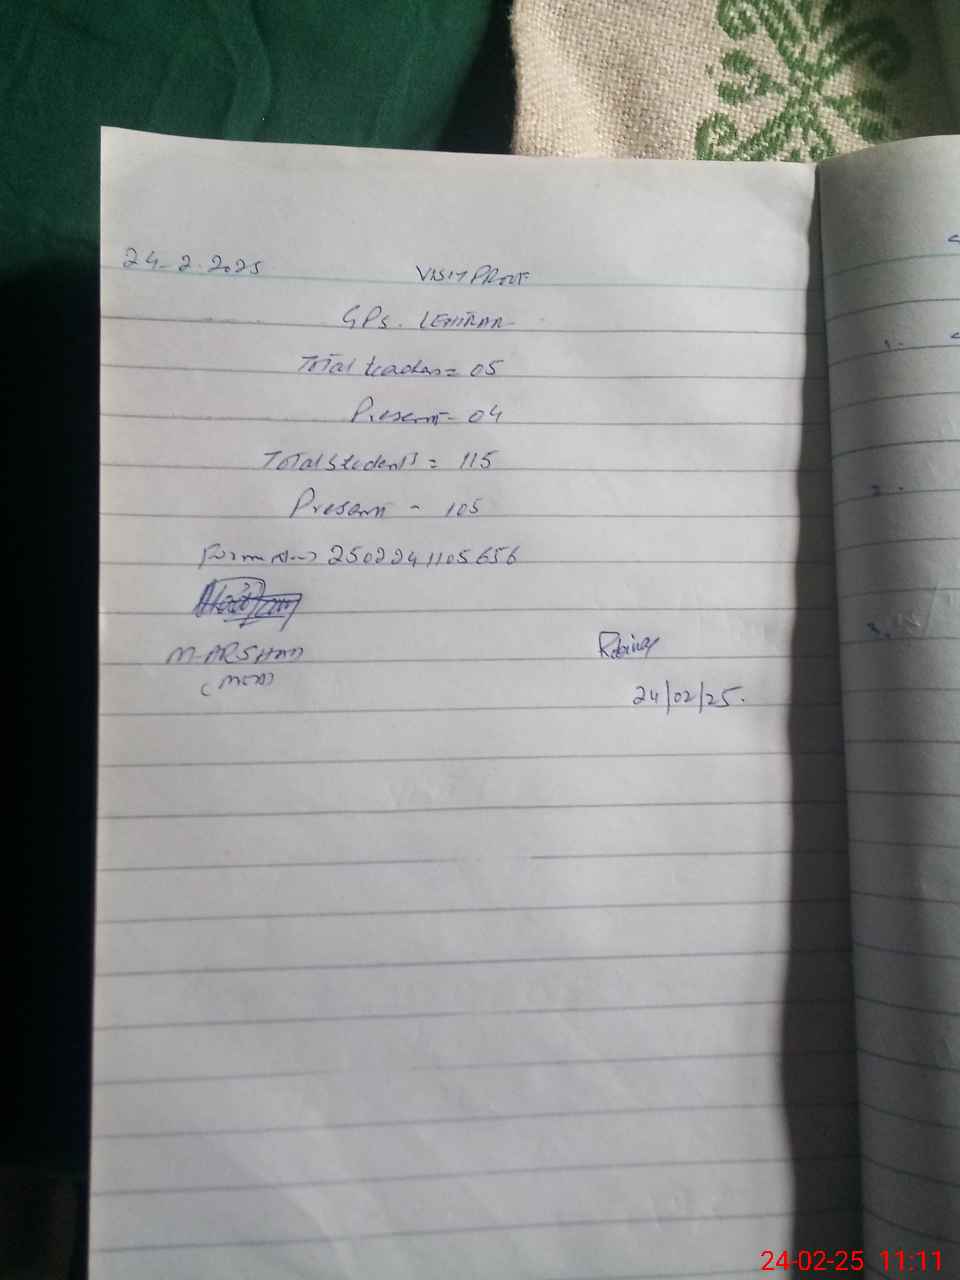 24-2-2025 VISIT PROOF
GPS. LEHTRAR
Total teachers = 05
Present - 04
Total students = 115
Present - 105
Form No 2502241105656
M-ARSHAD
Rabina
24/02/25.
24-02-25 11:11